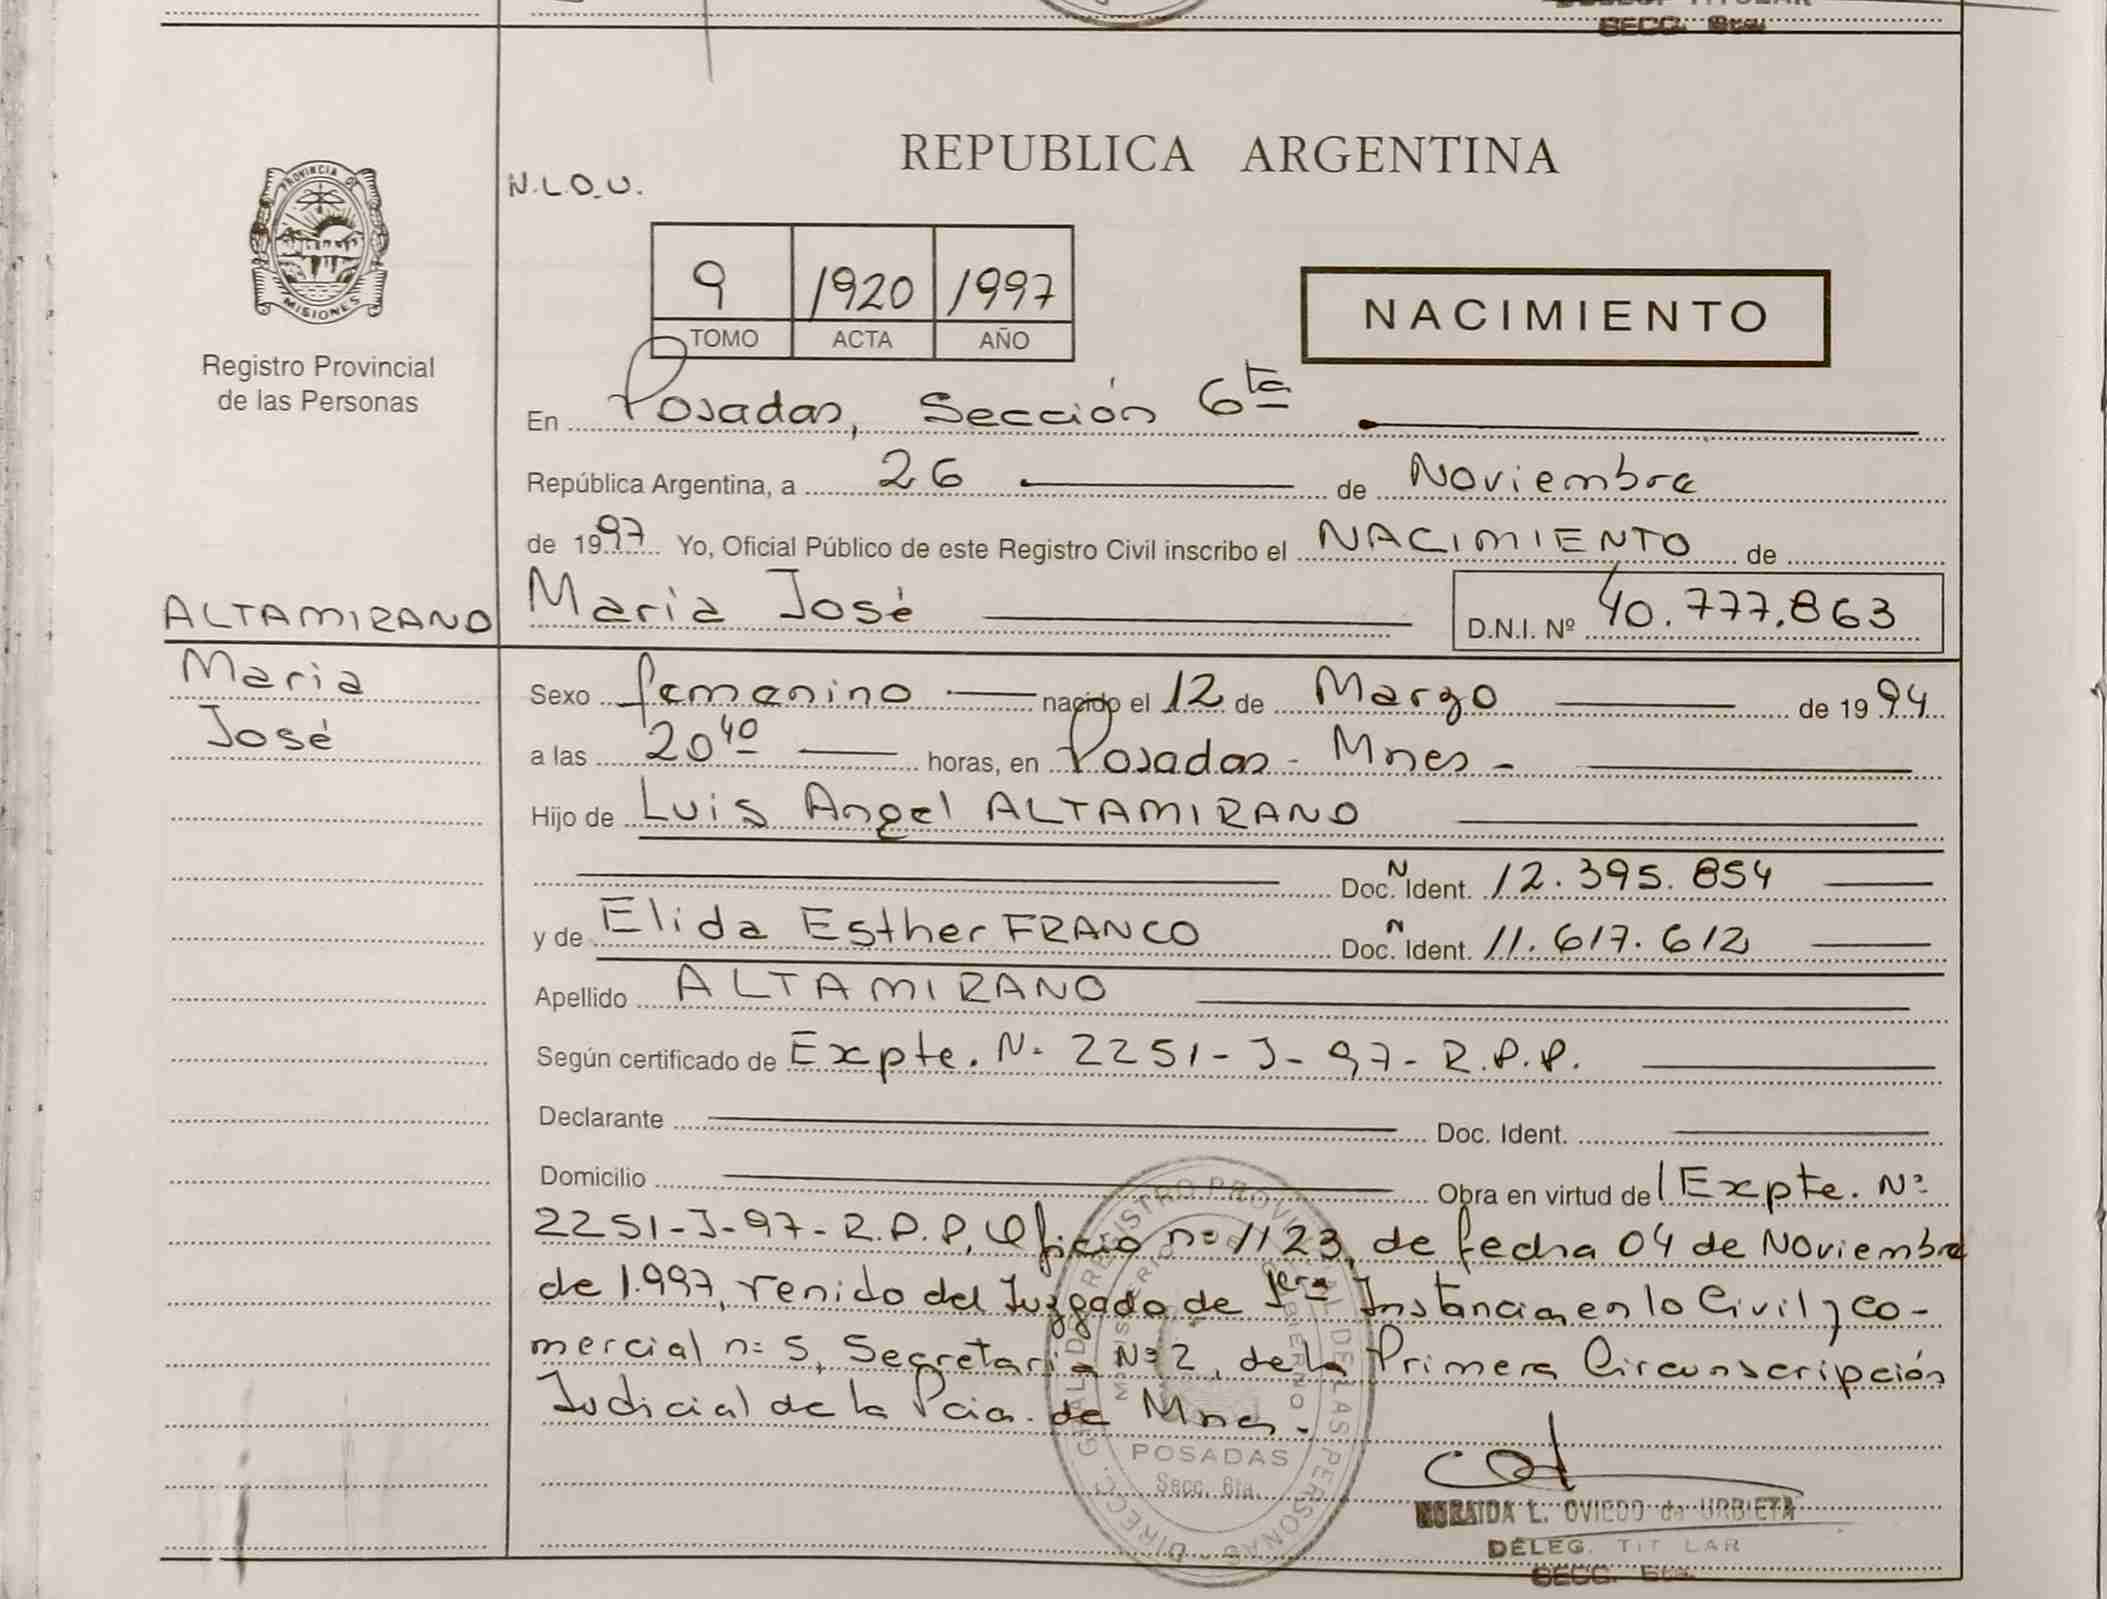 SECC. 6ta
REPUBLICA ARGENTINA
PROVINCIA DE
MISIONES
Registro Provincial
de las Personas
N.L.O.U.
9 1920 1997
TOMO ACTA AÑO
NACIMIENTO
En Posadas, Sección 6ta
República Argentina, a 26 de Noviembre
de 1997 Yo, Oficial Público de este Registro Civil inscribo el NACIMIENTO de
ALTAMIRANO
Maria
José
Maria José D.N.I. Nº 40.777.863
Sexo femenino nacido el 12 de Marzo de 1994
a las 20 40 horas, en Posadas - Mnes -
Hijo de Luis Angel ALTAMIRANO
Doc. N Ident. 12.395.854
y de Elida Esther FRANCO Doc. N Ident. 11.617.612
Apellido ALTAMIRANO
Según certificado de Expte. N. 2251-J-97-R.P.P.
Declarante Doc. Ident.
Domicilio Obra en virtud de l Expte. Nº
2251-J-97-R.P.P, Oficio nº 1123, de fecha 04 de Noviembre
de 1.997, venido del Juzgado de 1era Instancia en lo Civil y co-
mercial nº 5, Secretaria Nº 2, de la Primera Circunscripción
Judicial de la Pcia. de Mnes.
DIRECC. GRAL DEL REGISTRO PROVINCIAL DE LAS PERSONAS
POSADAS
Secc. 6ta.
NORAIDA L. OVIEDO de URBIETA
DELEG. TIT LAR
SECC. 6ta